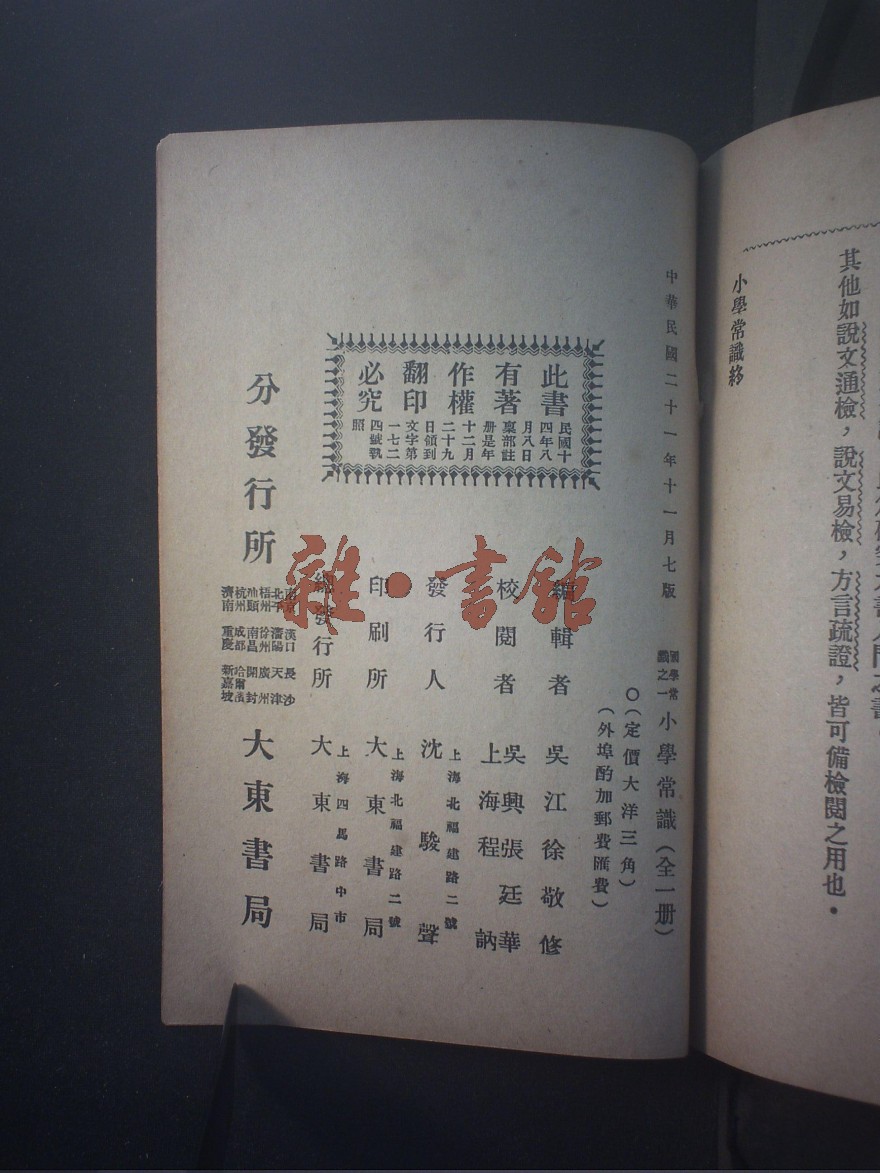 其他如說文通檢，說文易檢，方言疏證，皆可備檢閱之用也．
小學常識終
中華民國二十一年十一月七版
國學常識之一 小學常識（全一册）
〇（定價大洋三角）
（外埠酌加郵費匯費）
此書有著作權翻印必究
民國十四年八月八日稟部註册是年十二月二十九日領到文字第一七二四號執照
編輯者 吳江徐敬修
校閱者 吳興張廷華
上海程訥
發行人 沈駿聲
上海北福建路二號
印刷所 大東書局
上海北福建路二號
總發行所 大東書局
上海四馬路中市
分發行所
南京 漢口 長沙
北平 瀋陽 天津
梧州 徐州 廣州
汕頭 南昌 開封
杭州 成都 哈爾濱
濟南 重慶 新嘉坡
大東書局
雜·書館